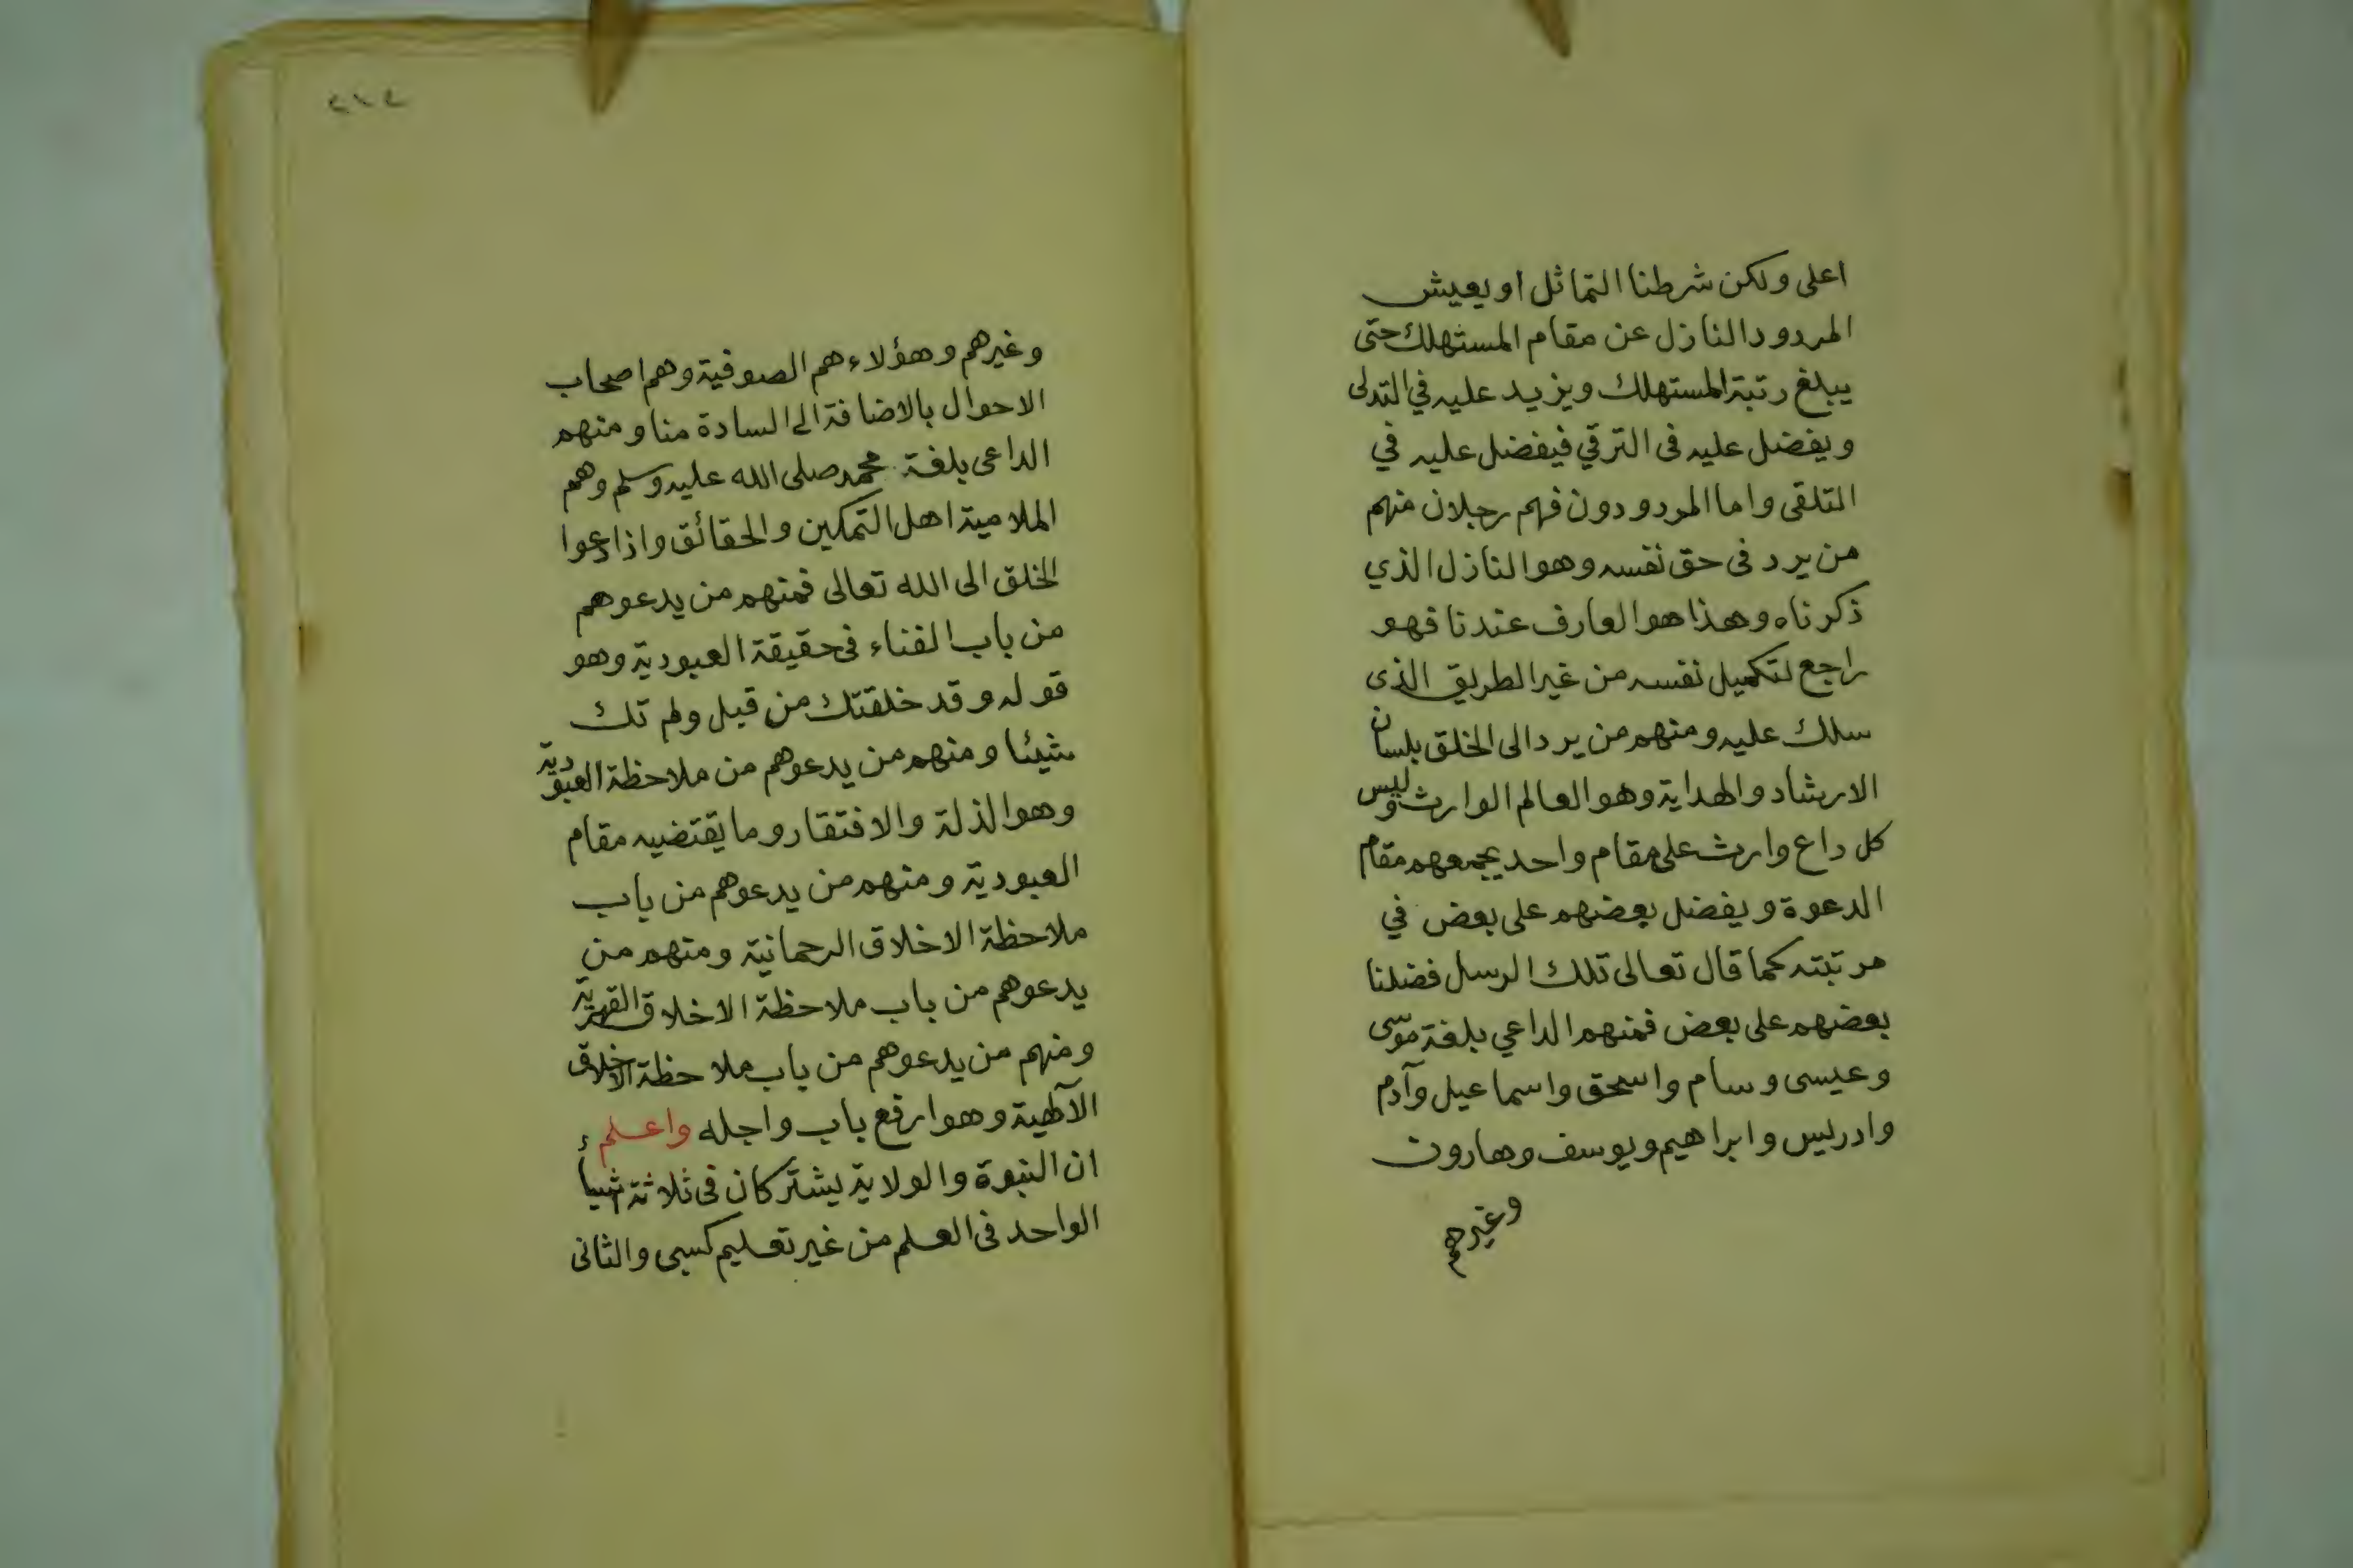 اعلى ولكن شرطنا التماثل او يعيش
المردود النازل عن مقام المستهلك حتى
يبلغ رتبة المستهلك ويزيد عليه في التدلى
ويفضل عليه فى الترقي فيفضل عليه في
التلقى واما المردودون فهم رجلان منهم
من يرد فى حق نفسه وهو النازل الذي
ذكرناه وهذا هو العارف عندنا فهو
راجع لتكميل نفسه من غير الطريق الذى
سلك عليه ومنهم من يرد الى الخلق بلسان
الارشاد والهداية وهو العالم الوارث وليس
كل داع وارث على مقام واحد يجمعهم مقام
الدعوة ويفضل بعضهم على بعض في
مرتبته كما قال تعالى تلك الرسل فضلنا
بعضهم على بعض فمنهم الداعي بلغة موسى
وعيسى وسام واسحق واسماعيل وآدم
وادريس وابراهيم ويوسف وهارون
وغيرهم
٢١٤
وغيرهم وهؤلاء هم الصوفية وهم اصحاب
الاحوال بالاضافة الى السادة منا ومنهم
الداعى بلغة محمد صلى الله عليه وسلم وهم
الملامية اهل التمكين والحقائق واذا دعوا
الخلق الى الله تعالى فمنهم من يدعوهم
من باب الفناء فى حقيقة العبودية وهو
قوله وقد خلقتك من قبل ولم تك
شيئا ومنهم من يدعوهم من ملاحظة العبودية
وهو الذلة والافتقار وما يقتضيه مقام
العبودية ومنهم من يدعوهم من باب
ملاحظة الاخلاق الرحمانية ومنهم من
يدعوهم من باب ملاحظة الاخلاق القهرية
ومنهم من يدعوهم من باب ملاحظة الاخلاق
الآلهية وهو ارفع باب واجله واعلم
ان النبوة والولاية يشتركان فى ثلاثة اشياء
الواحد فى العلم من غير تعليم كسبى والثانى